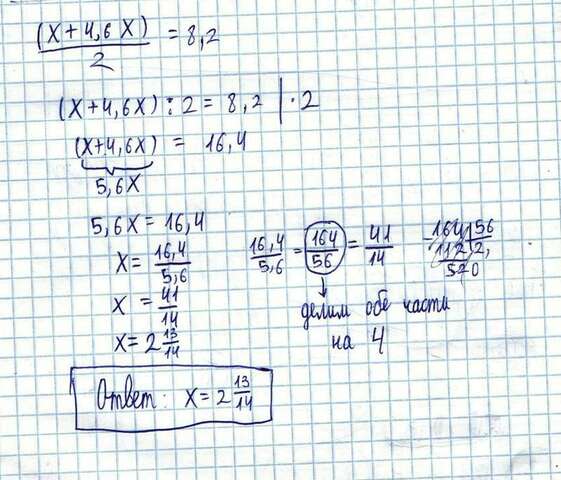 (x+4,6x)/2 = 8,2
(x+4,6x) : 2 = 8,2 | · 2
(x+4,6x) = 16,4
5,6x
5,6x = 16,4
x = 16,4/5,6
x = 41/14
x = 2 13/14
16,4/5,6 = 164/56 = 41/14
делим обе части
на 4
164 56
112 2,
520
Ответ: x = 2 13/14